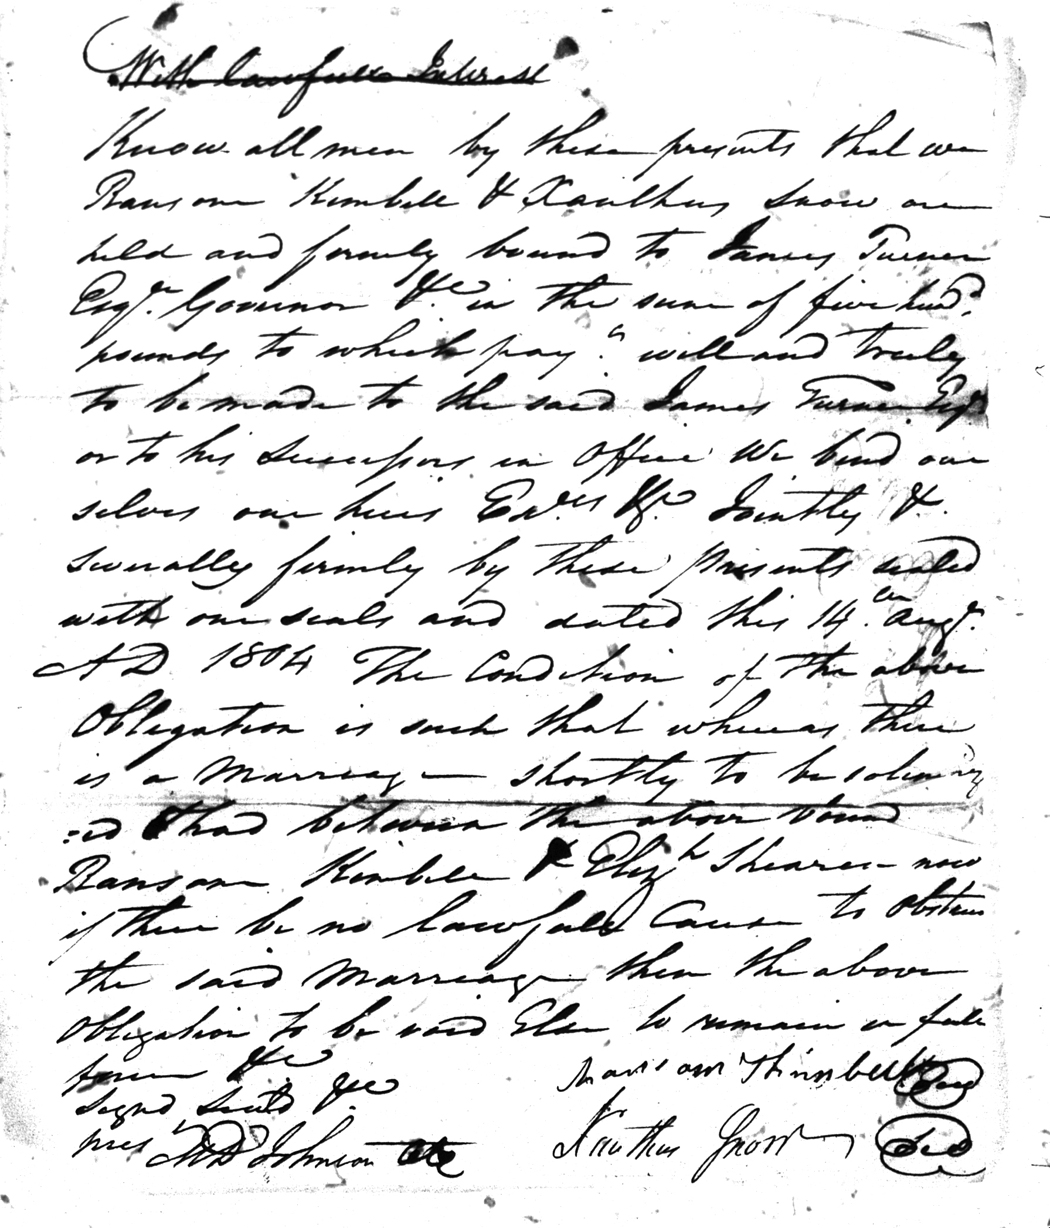 With lawfull Interest
Know all men by these presents that we
Ransom Kimbell & Xanthus Snow are
held and firmly bound to James Turner
Esqr. Governor &c in the sum of five hund.d
pounds to which paym. well and truly
to be made to the said James Turner Esqr
or to his Successors in Office We bind our
selves our heirs Exr.es &c. Jointly &
severally firmly by these presents sealed
with our seals and dated this 14.th Augt.
A D 1804 The Condition of the above
Obligation is such that whereas there
is a Marriage shortly to be solemniz
:ed & had between the above bound
Ransom Kimbell & Elizh Shearer now
if there be no lawfull Cause to Obstruct
the said Marriage then the above
Obligation to be void Else to remain in full
force &c
Signd Seald &c
pres
Ransom Kimbell Seal
Johnson Xanthus Snow Seal